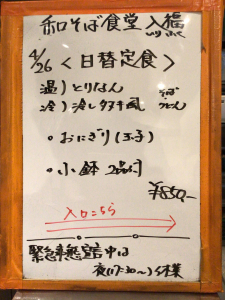 和そば食堂 入福
いりふく
4/26 <日替定食>
温)とりなん
冷)冷したぬき風
そば
うどん
・おにぎり(玉子)
・小鉢 2品付
¥850-
入口こちら
緊急事態宣言中は
夜(17:30~)休業